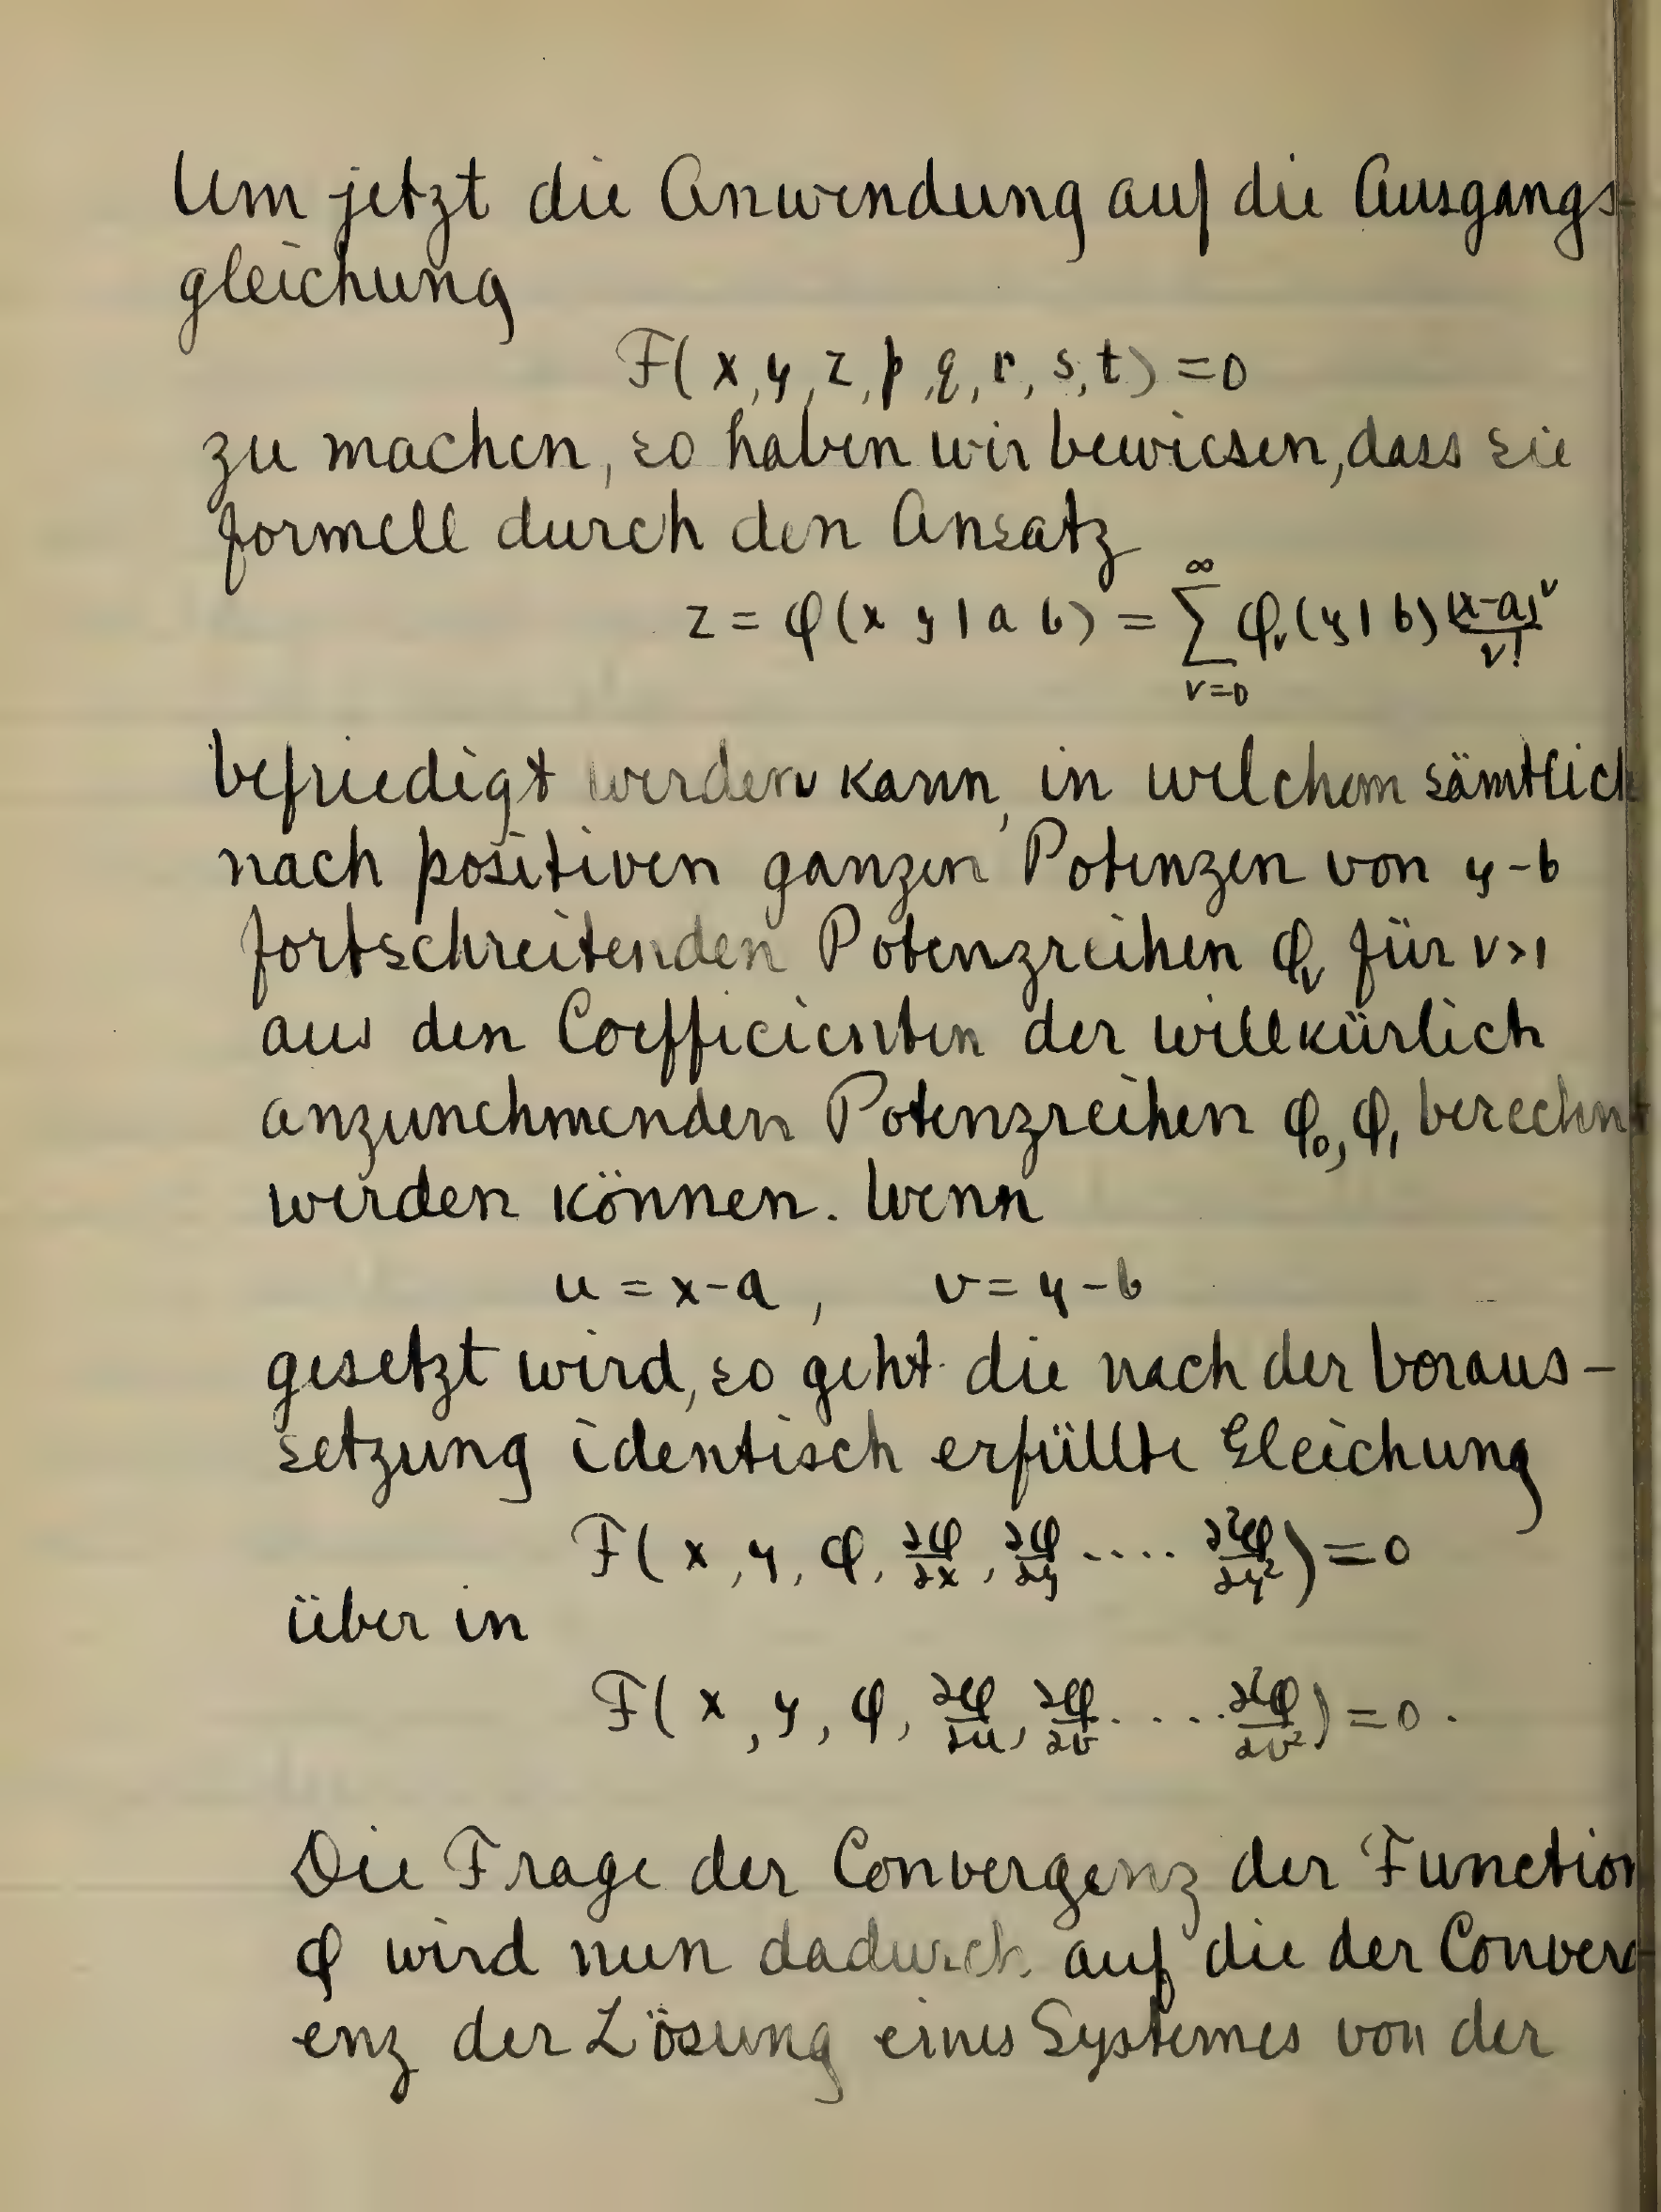 Um jetzt die Anwendung auf die Ausgangs-
gleichung
F(x, y, z, p, q, r, s, t) = 0
zu machen, so haben wir bewiesen, dass sie
formell durch den Ansatz
z = φ(x y | a b) = ∑_{ν=0}^{∞} φ_ν(y | b) (x-a)^ν / ν!
befriedigt werden kann, in welchem sämtlich
nach positiven ganzen Potenzen von y-b
fortschreitenden Potenzreihen φ_ν für ν>1
aus den Coefficienten der willkürlich
anzunehmenden Potenzreihen φ_0, φ_1 berechnt
werden können. Wenn
u = x-a, v = y-b
gesetzt wird, so geht die nach der Voraus-
setzung identisch erfüllte Gleichung
F(x, y, φ, ∂φ/∂x, ∂φ/∂y .... ∂²φ/∂y²) = 0
über in
F(x, y, φ, ∂φ/∂u, ∂φ/∂v .... ∂²φ/∂v²) = 0.
Die Frage der Convergenz der Function
φ wird nun dadurch auf die der Converg-
enz der Lösung eines Systemes von der